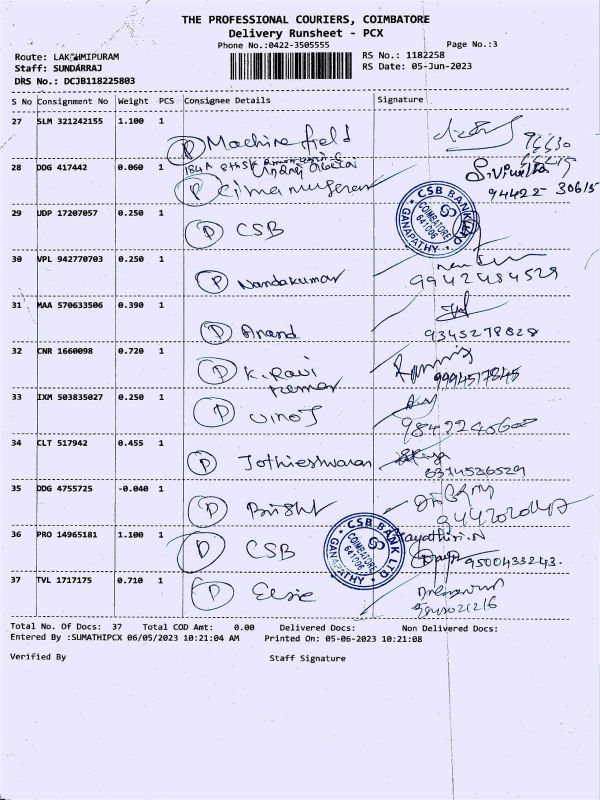 THE PROFESSIONAL COURIERS, COIMBATORE
Delivery Runsheet - PCX
Phone No.:0422-3505555
Page No.:3
Route: LAKSHMIPURAM
RS No.: 1182258
Staff: SUNDARRAJ
RS Date: 05-Jun-2023
DRS No.: DCJB118225803
S No Consignment No Weight PCS Consignee Details Signature
27 SLM 321242155 1.100 1
P Machine field
28 DDG 417442 0.060 1
P
94422 30615
29 UDP 17207057 0.250 1
P CSB
CSB BANK LTD
COIMBATORE
641006
GANAPATHY
30 VPL 942770703 0.250 1
P Nandakumar
9942484529
31 MAA 570633506 0.390 1
P Anand
9345278828
32 CNR 1660098 0.720 1
P K. Ravi
Kumar
9994517845
33 IXM 503835027 0.250 1
P Vino J
34 CLT 517942 0.455 1
P Jothieshwaran
35 DDG 4755725 -0.040 1
P Bright
36 PRO 14965181 1.100 1
P CSB
CSB BANK LTD
COIMBATORE
641006
GANAPATHY
Gayathiri.N
9500433243.
37 TVL 1717175 0.710 1
P Elsie
Total No. Of Docs: 37 Total COD Amt: 0.00 Delivered Docs: Non Delivered Docs:
Entered By :SUMATHIPCX 06/05/2023 10:21:04 AM Printed On: 05-06-2023 10:21:08
Verified By Staff Signature